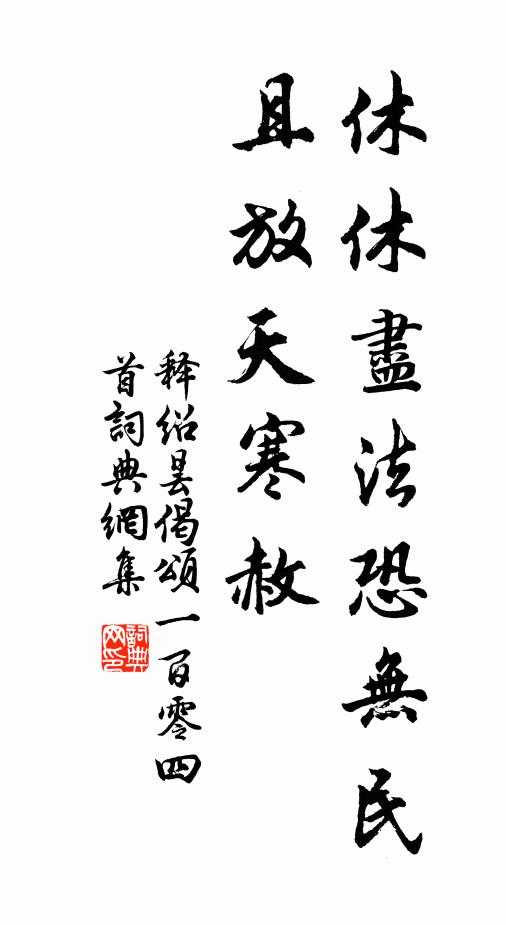 休休盡法恐無民
且放天寒赦
释紹曇偈頌一百零四
首詞典網集
詞典
网印